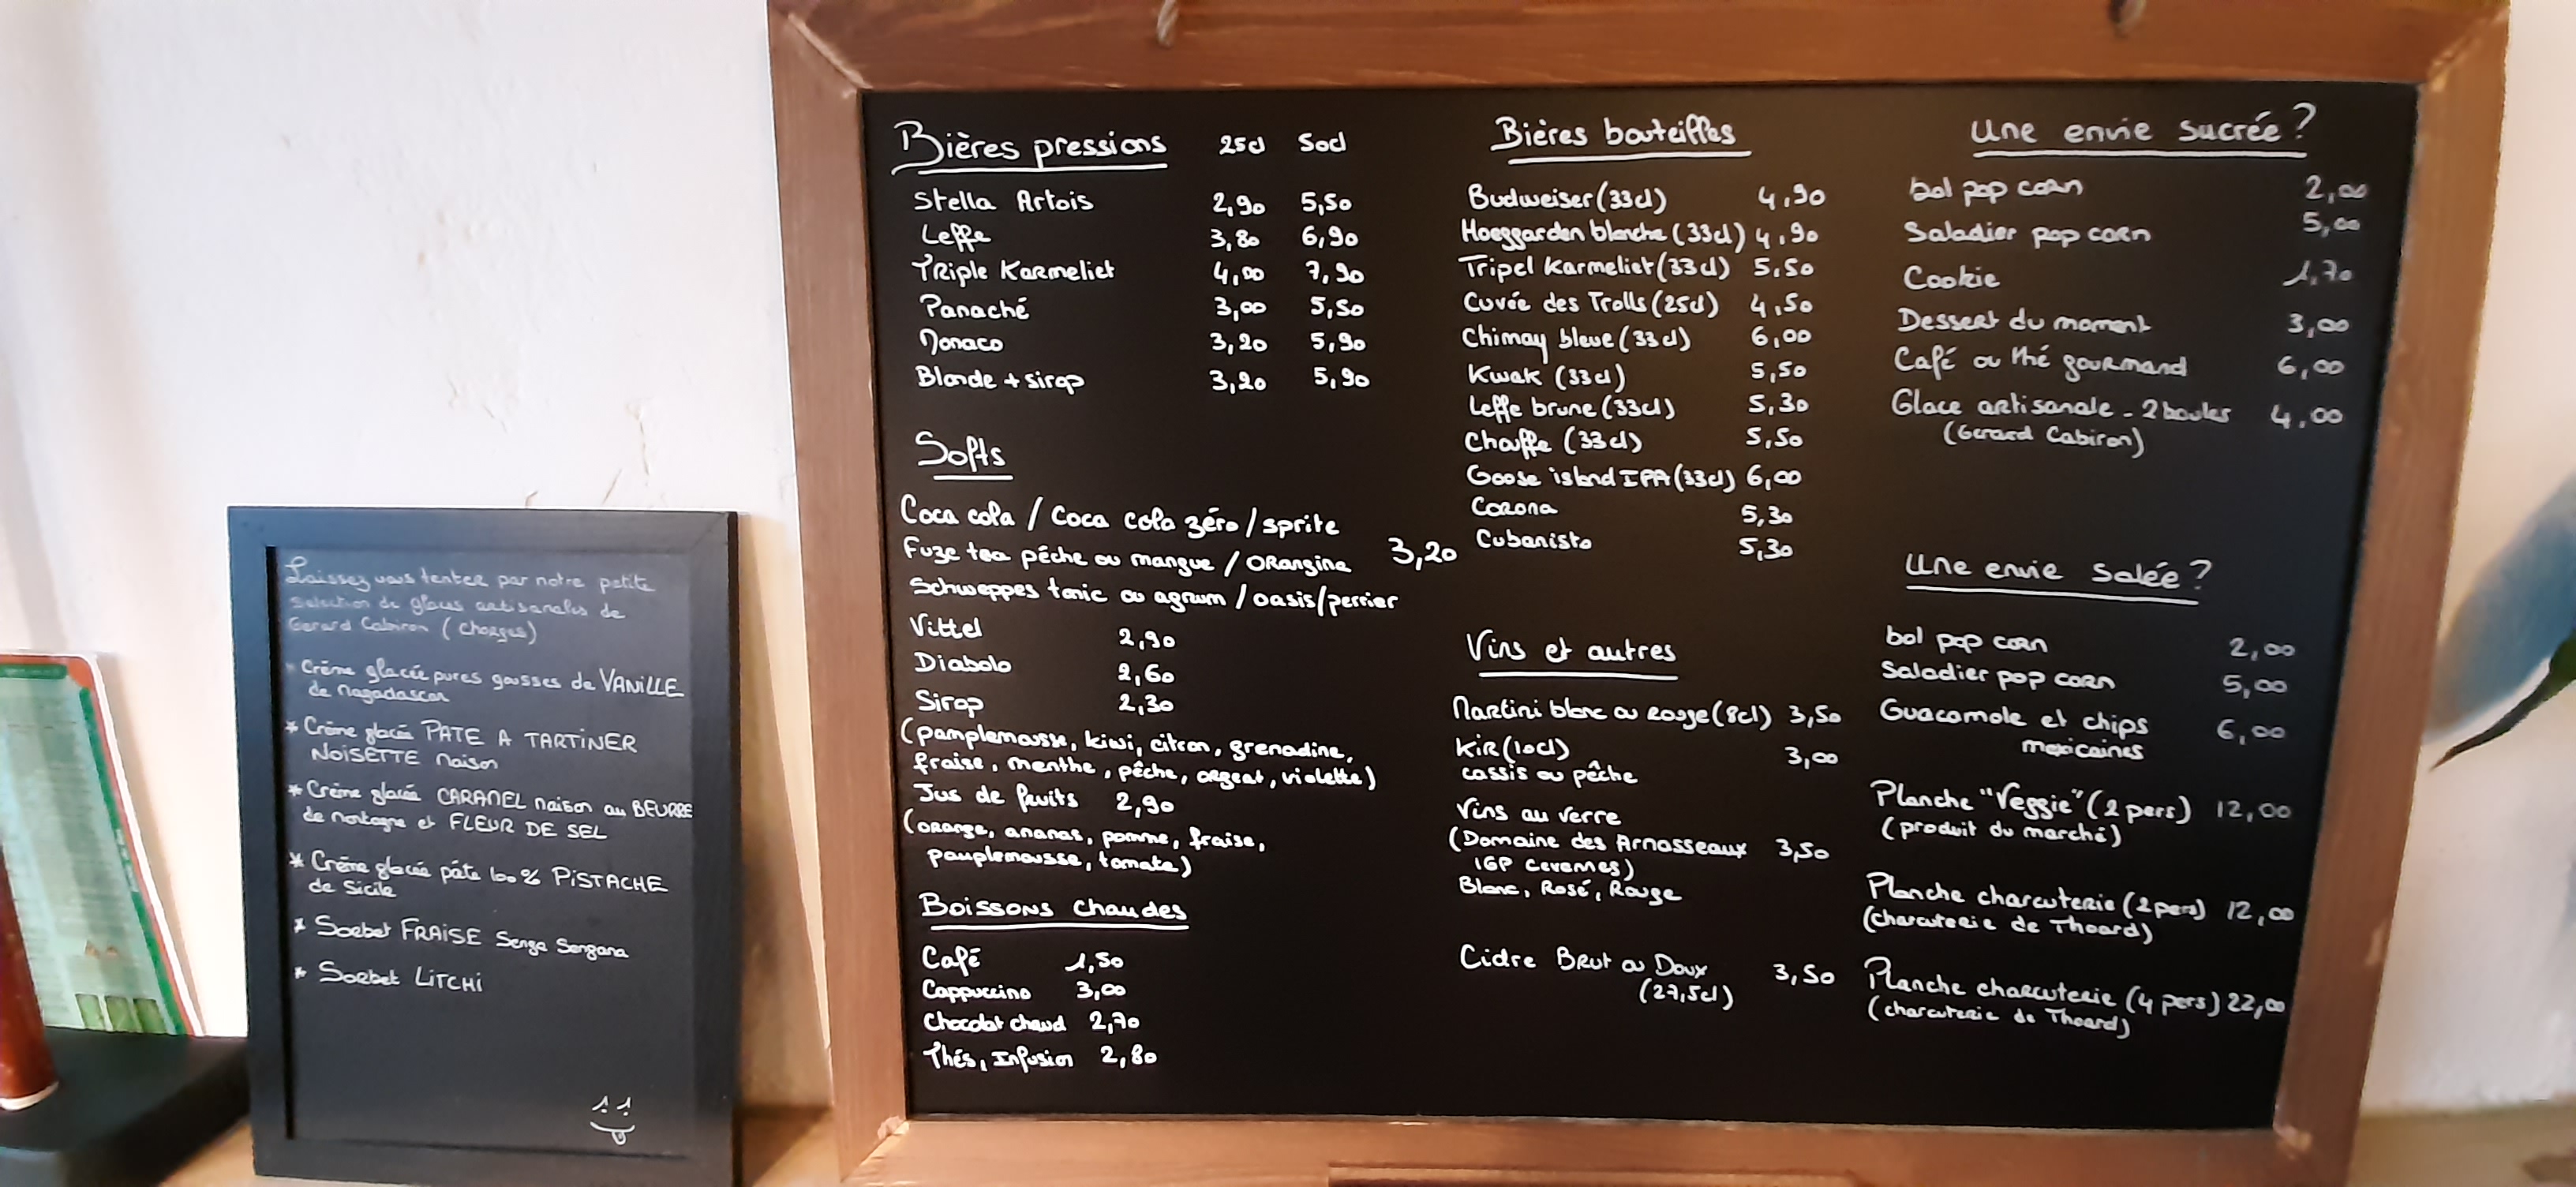 Laissez vous tenter par notre petite
selection de glaces artisanales de
Gerard Cabiron (Chorges)
* Crème glacée pures gousses de VANILLE
de Magadascar
* Crème glacée PATE A TARTINER
NOISETTE Maison
* Crème glacée CARAMEL Maison au BEURRE
de montagne et FLEUR DE SEL
* Crème glacée pâte 100% PISTACHE
de Sicile
* Sorbet FRAISE Senga Sengana
* Sorbet LITCHI
Bières pressions 25cl 50cl
Stella Artois 2,90 5,50
Leffe 3,80 6,90
Triple Karmeliet 4,00 7,90
Panaché 3,00 5,50
Monaco 3,20 5,90
Blonde + sirop 3,20 5,90
Softs
Coca cola / Coca cola zéro / sprite
Fuze tea pêche ou mangue / Orangina 3,20
Schweppes tonic ou agrum / oasis/perrier
Vittel 2,90
Diabolo 2,60
Sirop 2,30
(pamplemousse, kiwi, citron, grenadine,
fraise, menthe, pêche, orgeat, violette)
Jus de fruits 2,90
(orange, ananas, pomme, fraise,
pamplemousse, tomate)
Boissons chaudes
Café 1,50
Cappuccino 3,00
Chocolat chaud 2,70
Thés, Infusion 2,80
Bières bouteilles
Budweiser (33cl) 4,90
Hoeggarden blanche (33cl) 4,90
Tripel Karmeliet (33cl) 5,50
Cuvée des Trolls (25cl) 4,50
Chimay bleue (33cl) 6,00
Kwak (33cl) 5,50
Leffe brune (33cl) 5,30
Chouffe (33cl) 5,50
Goose island IPA (33cl) 6,00
Corona 5,30
Cubanisto 5,30
Vins et autres
Martini blanc ou rouge (8cl) 3,50
Kir (10cl) 3,00
cassis ou pêche
Vins au verre
(Domaine des Arnosseaux 3,50
IGP Cevennes)
Blanc, Rosé, Rouge
Cidre Brut ou Doux 3,50
(27,5cl)
Une envie sucrée ?
bol pop corn 2,00
Saladier pop corn 5,00
Cookie 1,70
Dessert du moment 3,00
Café ou thé gourmand 6,00
Glace artisanale - 2 boules 4,00
(Gerard Cabiron)
Une envie salée ?
bol pop corn 2,00
Saladier pop corn 5,00
Guacamole et chips 6,00
mexicaines
Planche "Veggie" (2 pers) 12,00
(produit du marché)
Planche charcuterie (2 pers) 12,00
(charcuterie de Thoard)
Planche charcuterie (4 pers) 22,00
(charcuterie de Thoard)